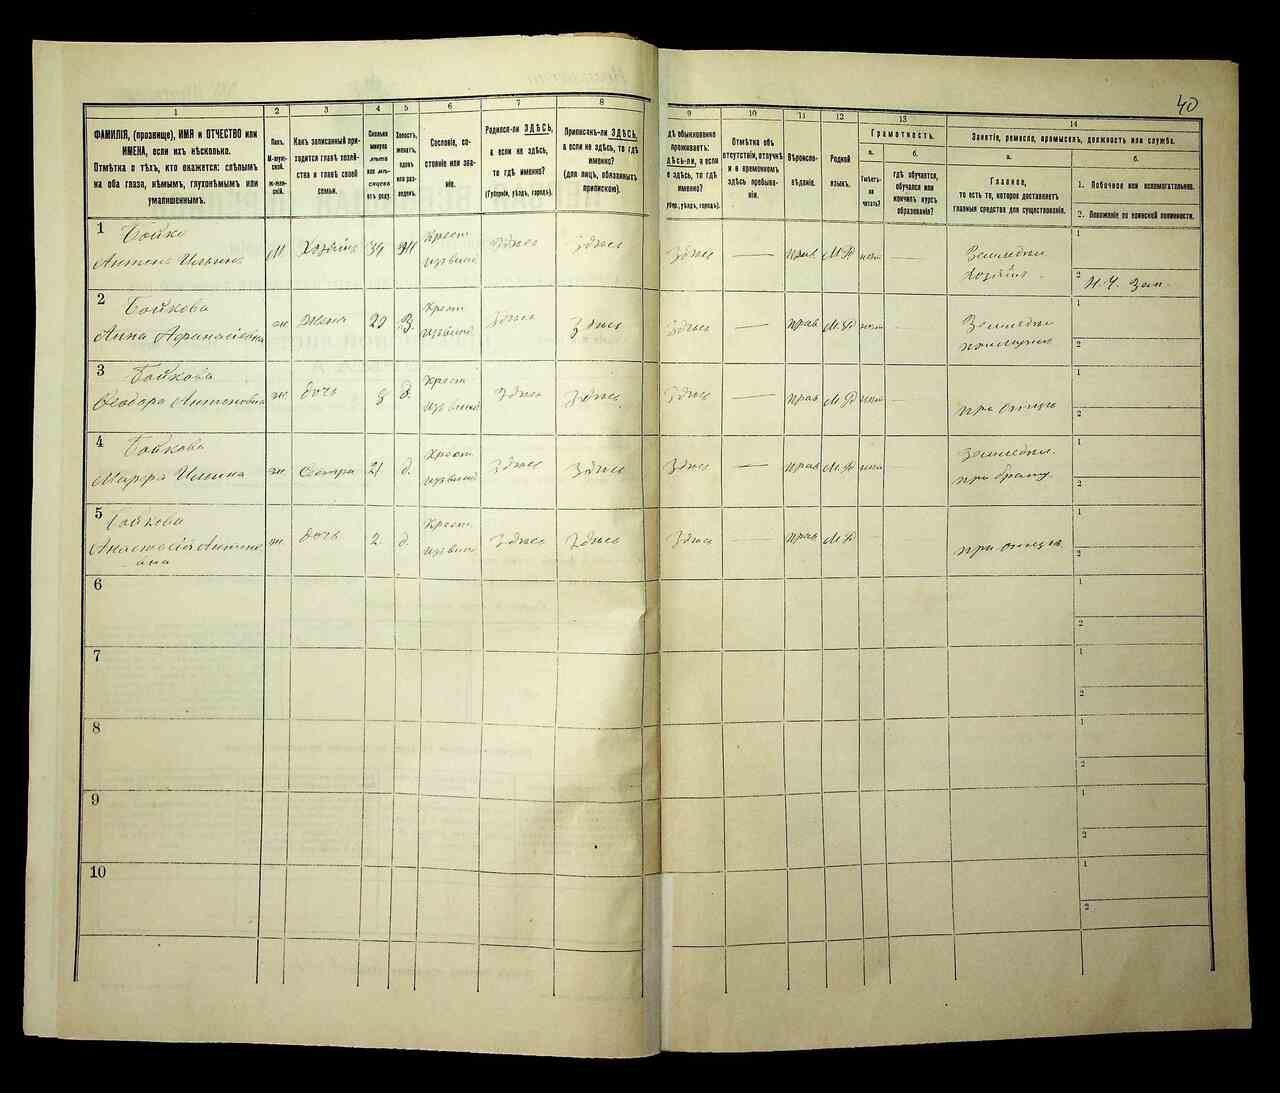 40
1 2 3 4 5 6 7 8 9 10 11 12 13 14
ФАМИЛІЯ, (прозвище), ИМЯ и ОТЧЕСТВО или
ИМЕНА, если ихъ нѣсколько.
Отмѣтка о тѣхъ, кто окажется: слѣпымъ
на оба глаза, нѣмымъ, глухонѣмымъ или
умалишеннымъ.
Полъ.
М-муж-
ской.
ж-жен-
скій.
Какъ записанный при-
ходится главѣ хозяй-
ства и главѣ своей
семьи.
Сколько
минуло
лѣтъ
или мѣ-
сяцевъ
отъ роду.
Холостъ,
женатъ,
вдовъ
или раз-
веденъ.
Сословіе, со-
стояніе или зва-
ніе.
Родился-ли ЗДѢСЬ,
а если не здѣсь,
то гдѣ именно?
(Губернія, уѣздъ, городъ).
Приписанъ-ли ЗДѢСЬ,
а если не здѣсь, то гдѣ
именно?
(для лицъ, обязанныхъ
припискою).
дѣ обыкновенно
проживаетъ:
дѣсь-ли, а если
е здѣсь, то гдѣ
именно?
убер., уѣздъ, городъ).
Отмѣтка объ
отсутствіи, отлучкѣ
и о временномъ
здѣсь пребыва-
ніи.
Вѣроиспо-
вѣданіе.
Родной
языкъ.
Грамотность.
а.
Умѣетъ-
ли
читать?
б.
гдѣ обучается,
обучался или
кончилъ курсъ
образованія?
Занятіе, ремесло, промыселъ, должность или служба.
а.
Главное,
то есть то, которое доставляетъ
главныя средства для существованія.
б.
1. Побочное или вспомогательное.
2. Положеніе по воинской повинности.
1 Бойко
Антонъ Ильинъ М. Хозяинъ 39 Ж. Крест. изъ Здѣсь Здѣсь Здѣсь — прав М.Р — Земледѣл. Хозяинъ
1
2
2 Бойкова
Анна Афанасіевна ж. Жена 29 З. Крест. изъ Здѣсь Здѣсь Здѣсь — прав М.Р — Земледѣл
1
2
3 Бойкова
Ѳеодора Антоновна ж. дочь 8 д. Крест. изъ Здѣсь Здѣсь Здѣсь — прав М.Р — при отцѣ
1
2
4 Бойкова
Марфа Ильина ж. Сестра 21 д. Крест. изъ Здѣсь Здѣсь Здѣсь — прав М.Р Земледѣл. при братѣ.
1
2
5 Бойкова
Анастасія Антоно- ж. дочь 2. д. Крест. изъ Здѣсь Здѣсь Здѣсь — прав М.Р при отцѣ
1
2
6
1
2
7
1
2
8
1
2
9
1
2
10
1
2